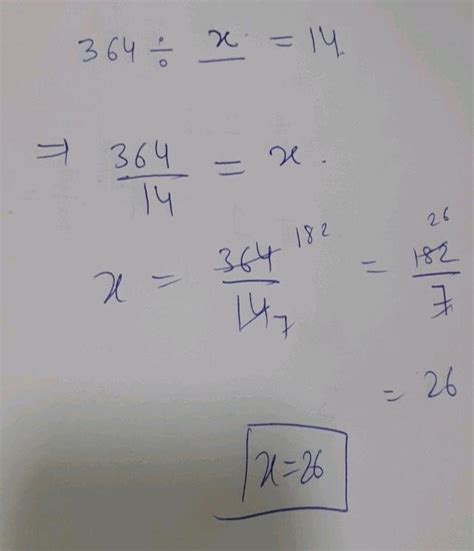 364 ÷ x = 14
⇒ 364/14 = x.
x = 364/14 182 7 = 182/7 26
= 26
x=26